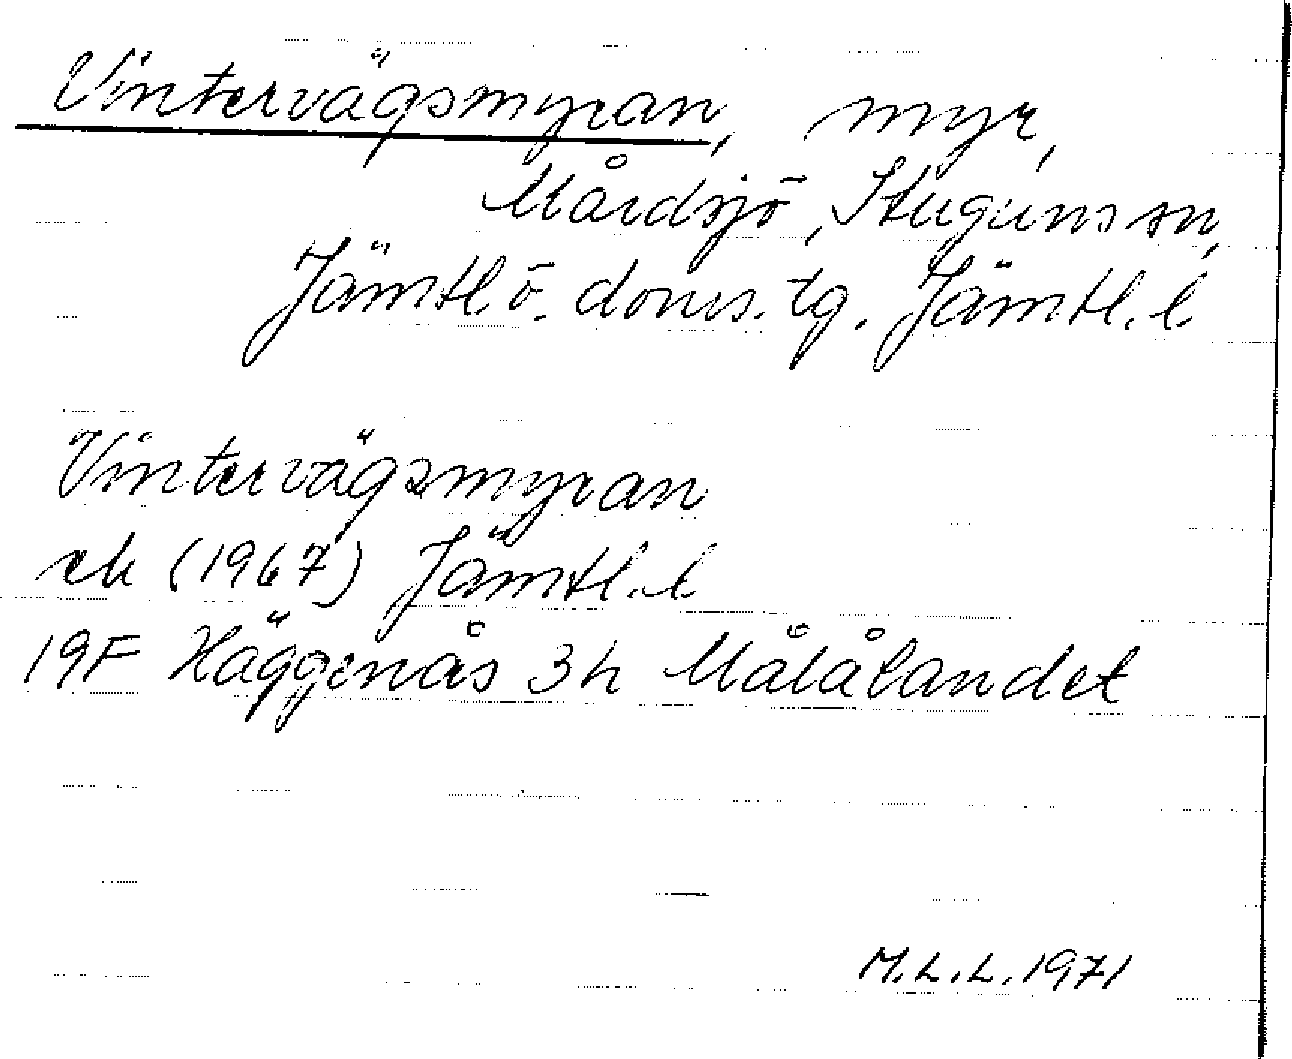 Vintervägsmyran, myr,
Mårdsjö, Stuguns sn,
Jämtl.ö. doms. tg. Jämtl. l.
Vintervägsmyran
ek (1967) Jämtl. l
19F Häggenås 3h Målålandet
M.L.L. 1971